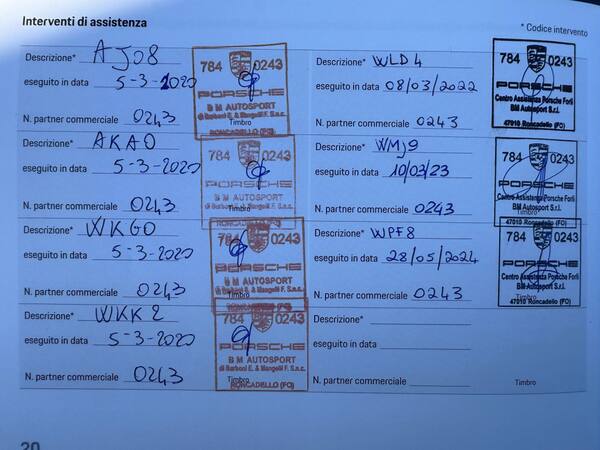 Interventi di assistenza
* Codice intervento
Descrizione* AJ08
eseguito in data 5-3-2020
N. partner commerciale 0243
784 0243
PORSCHE
B M AUTOSPORT
di Barboni E. & Mangelli F. S.n.c.
Timbro
RONCADELLO (FO)
Descrizione* AKA0
eseguito in data 5-3-2020
N. partner commerciale 0243
784 0243
PORSCHE
B M AUTOSPORT
di Barboni E. & Mangelli F. S.n.c.
Timbro
RONCADELLO (FO)
Descrizione* WKG0
eseguito in data 5-3-2020
N. partner commerciale 0243
784 0243
PORSCHE
B M AUTOSPORT
di Barboni E. & Mangelli F. S.n.c.
Timbro
RONCADELLO (FO)
Descrizione* WKK2
eseguito in data 5-3-2020
N. partner commerciale 0243
784 0243
PORSCHE
B M AUTOSPORT
di Barboni E. & Mangelli F. S.n.c.
RONCADELLO (FO)
Descrizione* WLD4
eseguito in data 08/03/2022
N. partner commerciale 0243
784 0243
PORSCHE
Centro Assistenza Porsche Forlì
BM Autosport S.r.l.
47010 Roncadello (FO)
Descrizione* WMJ9
eseguito in data 10/03/23
N. partner commerciale 0243
784 0243
PORSCHE
Timbro
Centro Assistenza Porsche Forlì
BM Autosport S.r.l.
47010 Roncadello (FO)
Descrizione* WPF8
eseguito in data 28/05/2024
N. partner commerciale 0243
784 0243
PORSCHE
Centro Assistenza Porsche Forlì
BM Autosport S.r.l.
Timbro
47010 Roncadello (FO)
Descrizione*
eseguito in data
N. partner commerciale
Timbro
20